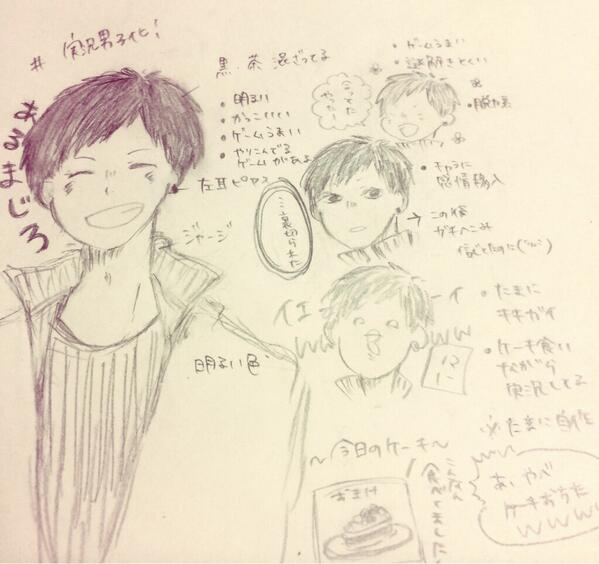 # 実況男子化!
まるまじろ
黒・茶 混ざってる
・明るい
・かっこいい
・ゲームうまい
・やりこんでる
ゲームがあるよ
左耳ピアス
ジャージ
明るい色
・ゲームうまい
・謎解きとくい
やったー
・キャラに
感情移入
…裏切られた
→この後
ガチへこみ
イエーーイ
ww
www
・たまに
キチガイ
・ケーキ食い
ながら
実況してる
※たまに自作
〜今日のケーキ〜
こんなん
食べてました!
おまけ
あ、やべ
ケーキおちた
www